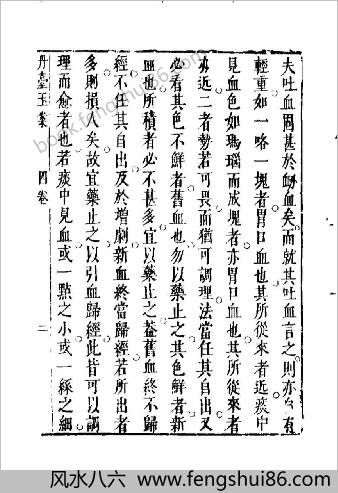 夫吐血固甚於衂血矣而就其吐血言之則亦有
輕重如一咯一塊者胃口血也其所從來者近痰中
見血色如瑪瑙而成塊者亦胃口血也其所從來者
亦近二者勢若可畏而猶可調理法當任其自出又
必看其色不鮮者舊血也勿以藥止之其色鮮者新
血也所積者必不甚多宜以藥止之葢舊血終不歸
經不任其自出及於增劇新血終當歸經若所出者
多則損人矣故宜藥止之以引血歸經此皆可以調
理而愈者也若痰中見血或一㸃之小或一絲之細
丹臺玉案 四卷 二
book.fengshui86.com
风水八六 - www.fengshui86.com